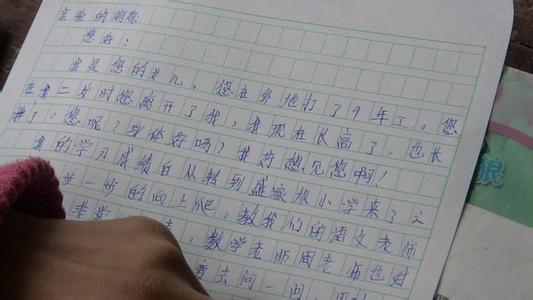 亲爱的妈妈
您好：
我是您的女儿。您在外地打了9年工。您
在我二岁时您离开了我，我现在长高了，也长
胖了。您呢？身体好吗？我好想见您啊！
我的学习成绩自从转到盛家坝小学来了之
步一步的向上爬。教我们的语文老师
非常，数学老师周老师也好
我去问一问，
狼